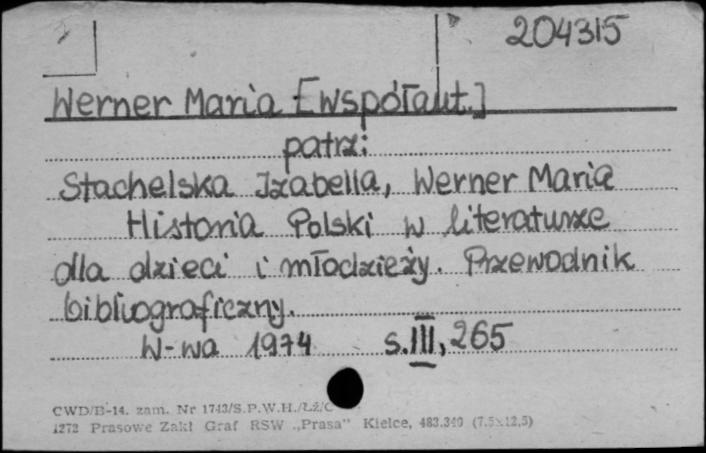 204315
Werner Maria [współaut.]
patrz:
Stachelska Izabella, Werner Maria
Historia Polski w literaturze
dla dzieci i młodzieży. Przewodnik
bibliograficzny.
W-wa 1974 s. III, 265
CWD/B-14. zam. Nr 1743/S.P.W.H./Łź/C
1272 Prasowe Zakł Graf RSW „Prasa" Kielce, 483.340 (7.5x12,5)